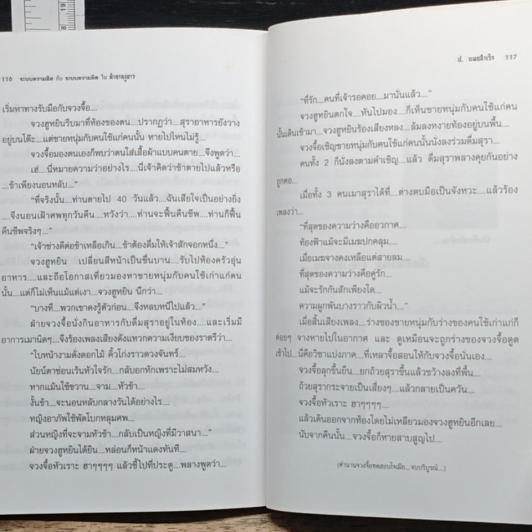 116 ระบบความคิด กับ ระบบความคิด ใน
เริ่มหาทางรับมือกับจวงจื้อ...
จวงฮูหยินรีบมาที่ห้องของตน... ปรากฏว่า... สุราอาหารยังวาง
อยู่บนโต๊ะ... แต่ชายหนุ่มกับคนใช้แก่คนนั้น หายไปไหนไม่รู้...
จวงจื้อมองตนเองก็พบว่าตนใส่เสื้อผ้าแบบคนตาย... จึงพูดว่า...
เฮ่... นี่หมายความว่าอย่างไร... นี่เจ้าคิดว่าข้าตายไปแล้วหรือ
...ข้าเพียงนอนหลับ..."
"ที่จริงนั้น... ท่านตายไป 40 วันแล้ว... ฉันเสียใจเป็นอย่างยิ่ง
...จึงนอนเฝ้าศพทุกวันคืน... หวังว่า... ท่านจะฟื้นคืนชีพ... ท่านก็ฟื้น
คืนชีพจริงๆ..."
"เจ้าช่างดีต่อข้าเหลือเกิน... ข้าต้องดื่มให้เจ้าสักจอกหนึ่ง..."
จวงฮูหยิน เปลี่ยนสีหน้าเป็นชื่นบาน... รับไปห้องครัวอุ่น
อาหาร... และถือโอกาสเที่ยวมองหาชายหนุ่มกับคนใช้เก่าแก่คน
นั้น... แต่ก็ไม่เห็นแม้แต่เงา... จวงฮูหยิน นึกว่า...
"บางที... พวกเขาคงรู้ตัวก่อน... จึงหลบหนีไปแล้ว..."
ฝ่ายจวงจื้อนั่งกินอาหารกับดื่มสุราอยู่ในห้อง... และเริ่มมี
อาการเมานิดๆ... จึงร้องเพลงเสียงดังแหวกความเงียบของราตรีว่า...
"ใบหน้างามดั่งดอกไม้ คิ้วโก่งราวดวงจันทร์...
นัยน์ตาซ่อนเร้นหัวใจรัก... กลับอกหักเพราะไม่สมหวัง...
หากแม้นใช้ขวาน... จาม... หัวข้า...
งั้นข้า... จะนอนหลับกลางวันได้อย่างไร...
หญิงอาภัพใช้พัดโบกหลุมศพ...
ส่วนหญิงที่จะจามหัวข้า... กลับเป็นหญิงที่มีวาสนา..."
ฝ่ายจวงฮูหยินได้ยิน... หล่อนก็หน้าแดงทันที...
จวงจื้อหัวเราะ ฮาๆๆๆๆ แล้วชี้ไปที่ประตู... พลางพูดว่า...
117
"ที่รัก... คนที่เจ้ารอคอย... มานั่นแล้ว..."
จวงฮูหยินตกใจ... หันไปมอง... ก็เห็นชายหนุ่มกับคนใช้แก่คน
นั้นเดินเข้ามา... จวงฮูหยินร้องเสียงหลง... ล้มลงหงายท้องอยู่บนพื้น...
จวงจื้อเชิญชายหนุ่มกับคนใช้แก่คนนั้นนั่งลงร่วมดื่มสุรา...
คนทั้ง 2 ก็นั่งลงตามคำเชิญ... แล้ว ดื่มสุราพลางคุยกันอย่าง
ถูกคอ...
เมื่อทั้ง 3 คนเมาสุราได้ที่... ต่างตบมือเป็นจังหวะ... แล้วร้อง
เพลงว่า...
"ที่สุดของความว่างคืออวกาศ...
ท้องฟ้าแม้จะมีเมฆปกคลุม...
เมื่อเมฆจางคงเหลือแต่สายลม...
ที่สุดของความว่างคือคู่รัก...
แม้จะรักกันสักเพียงใด...
ความผูกพันบางราวกับผิวน้ำ..."
เมื่อสิ้นเสียงเพลง... ร่างของชายหนุ่มกับร่างของคนใช้เก่าแก่ก็
ค่อยๆ จางหายไปในอากาศ และ ดูเหมือนจะถูกร่างของจวงจื้อดูด
เข้าไป... นี่คือวิชาแบ่งภาค... ที่เหลาจื้อสอนให้กับจวงจื้อนั่นเอง...
จวงจื้อลุกขึ้นยืน... ยกถ้วยสุราขึ้นแล้วขว้างลงที่พื้น...
ถ้วยสุรากระจายเป็นเสี่ยงๆ... แล้วกลายเป็นควัน...
จวงจื้อหัวเราะ ฮาๆๆๆๆ...
แล้วเดินออกจากห้องโดยไม่เหลียวมองจวงฮูหยินอีกเลย...
นับจากคืนนั้น... จวงจื้อก็หายสาบสูญไป...
(ตำนานจวงจื้อทดสอบใจเมีย...จบบริบูรณ์...)